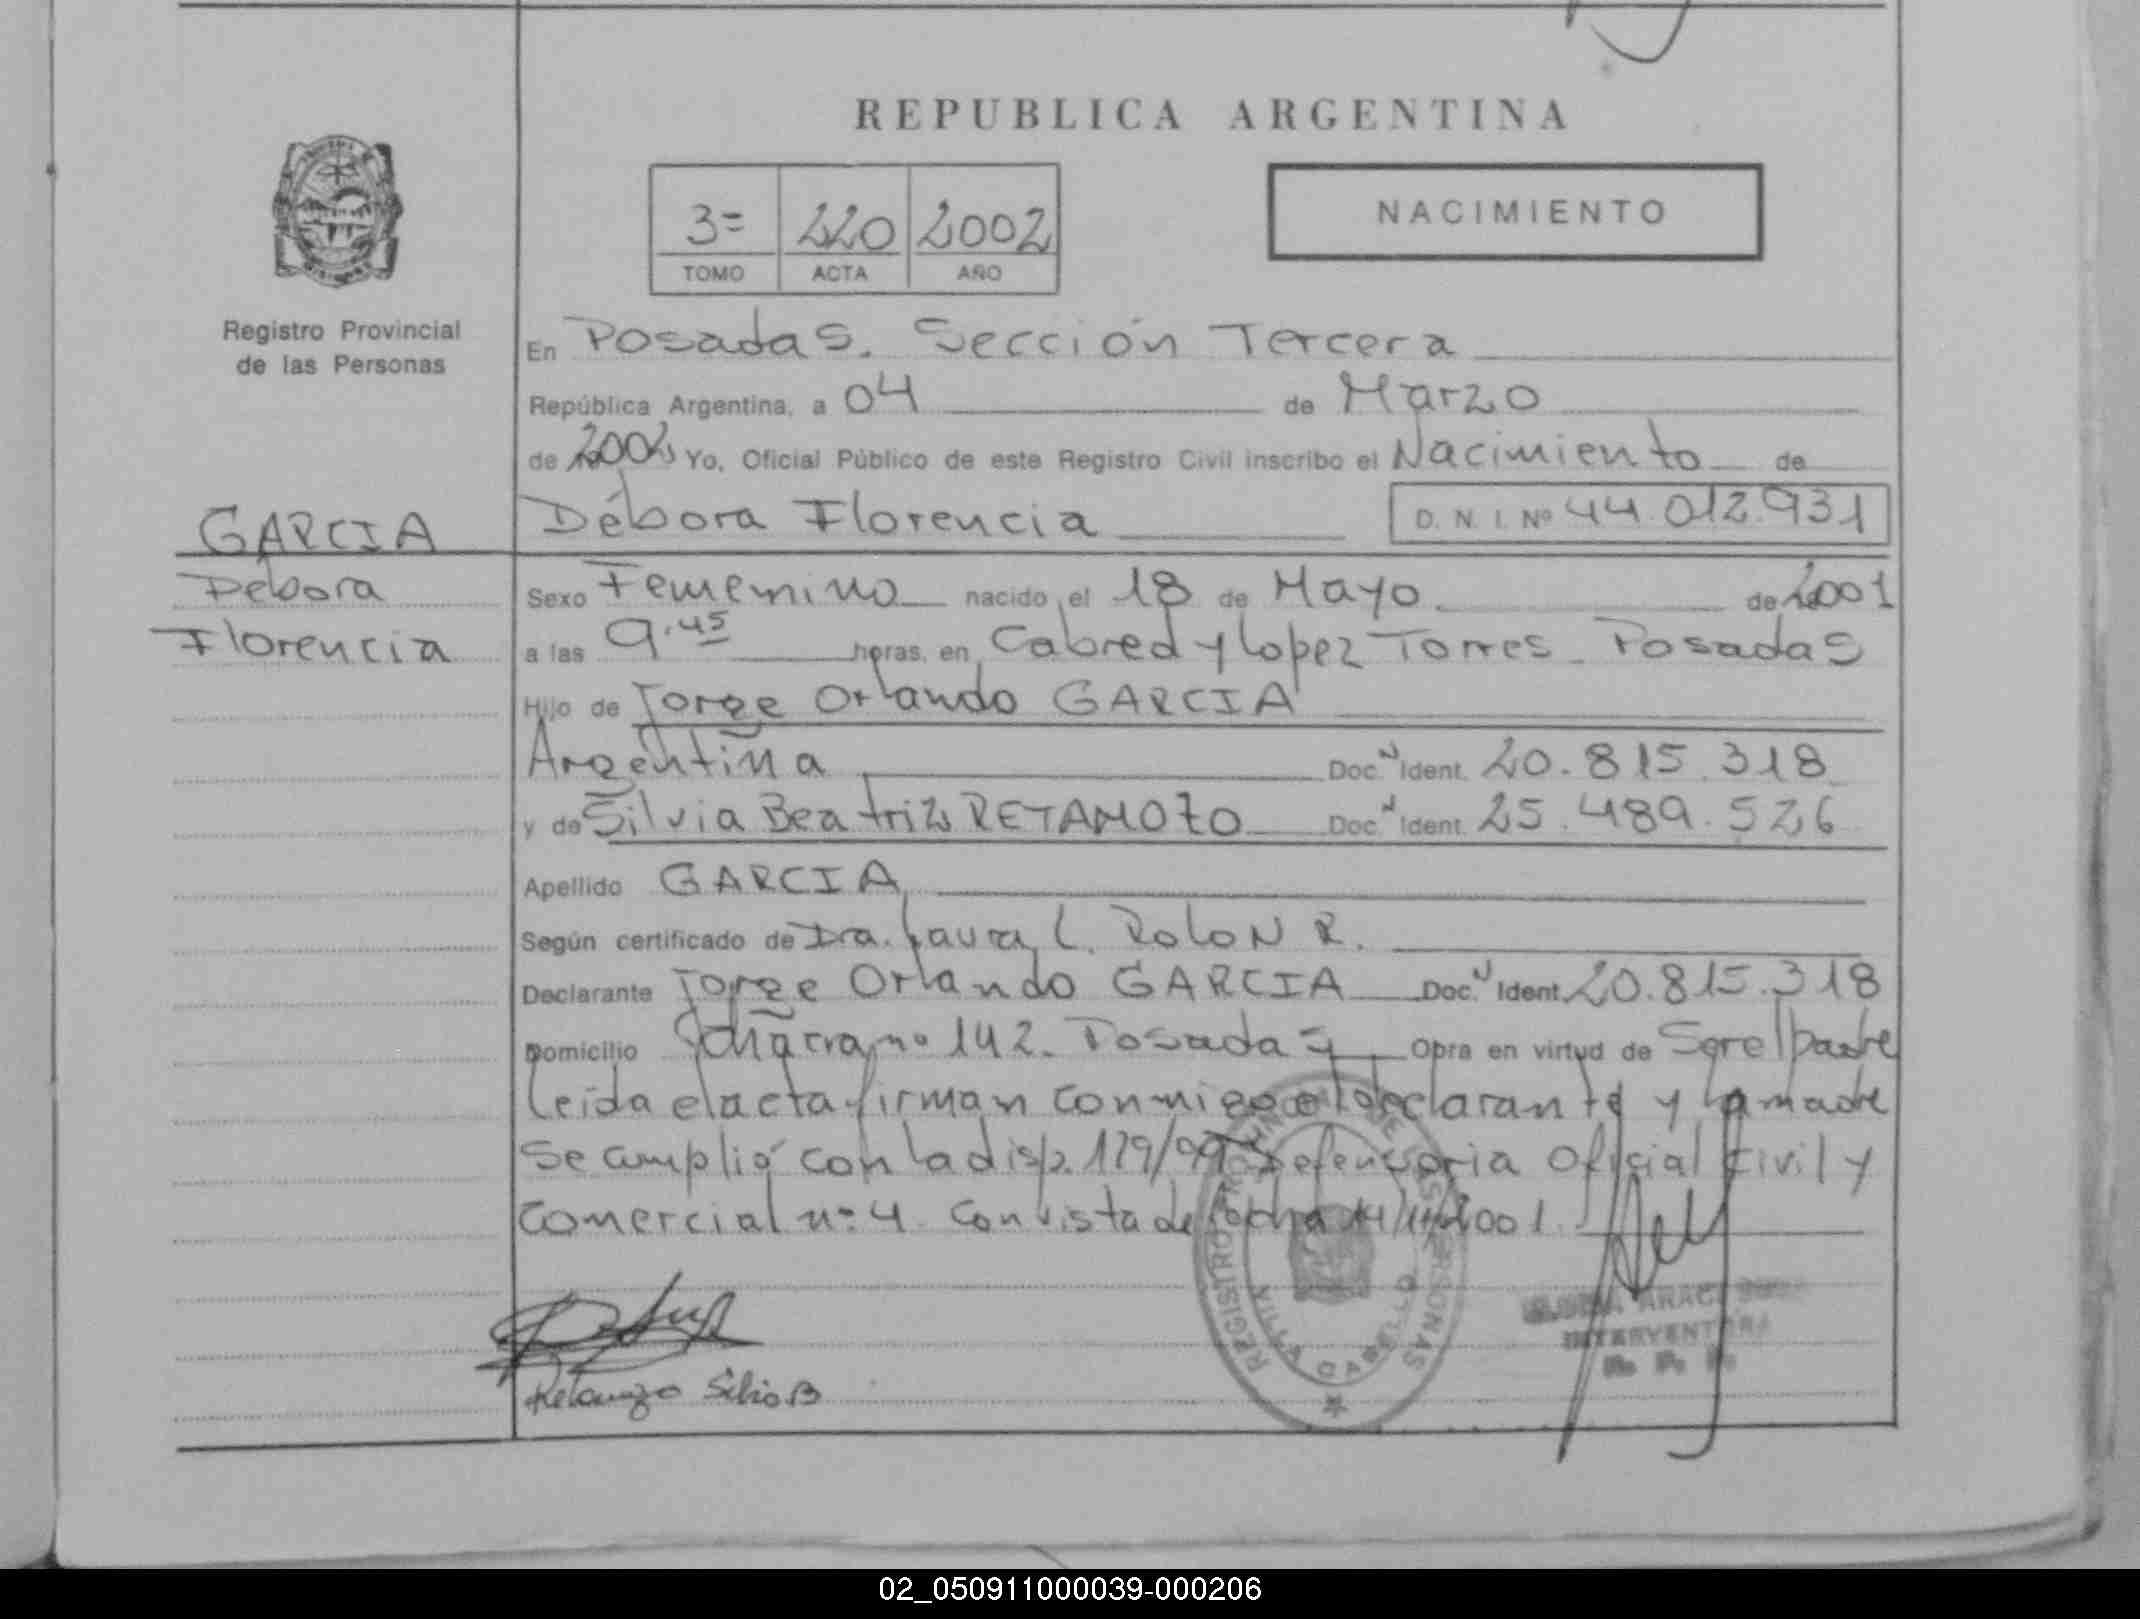 REPUBLICA ARGENTINA
3= 220 2002
TOMO ACTA AÑO
NACIMIENTO
Registro Provincial
de las Personas
En Posadas. Sección Tercera
República Argentina, a 04 de Marzo
de 2002 Yo, Oficial Público de este Registro Civil inscribo el Nacimiento de
GARCIA
Débora Florencia D. N. I. Nº 44.012.931
Débora
Florencia
Sexo Femenino nacido el 18 de Mayo de 2001
a las 9.45 horas, en Cabred y Lopez Torres - Posadas
Hijo de Jorge Orlando GARCIA
Argentina Doc. Ident. 20.815.318
y de Silvia Beatriz RETAMOZO Doc. Ident. 25.489.526
Apellido GARCIA
Según certificado de Dra. Laura L. Rolon R.
Declarante Jorge Orlando GARCIA Doc. Ident. 20.815.318
Domicilio Chacra nº 142. Posadas Obra en virtud de Ser el padre
Leida el acta firman conmigo el declarante y la madre
Se cumplió con la disp. 179/99 Defensoria Oficial Civil y
Comercial nº 4. Con vista de fecha 14/11/2001.
REGISTRO PROVINCIAL DE LAS PERSONAS
VILLA CABELLO
INTERVENTORA
R. P. P.
Retamozo Silvia B
02_050911000039-000206